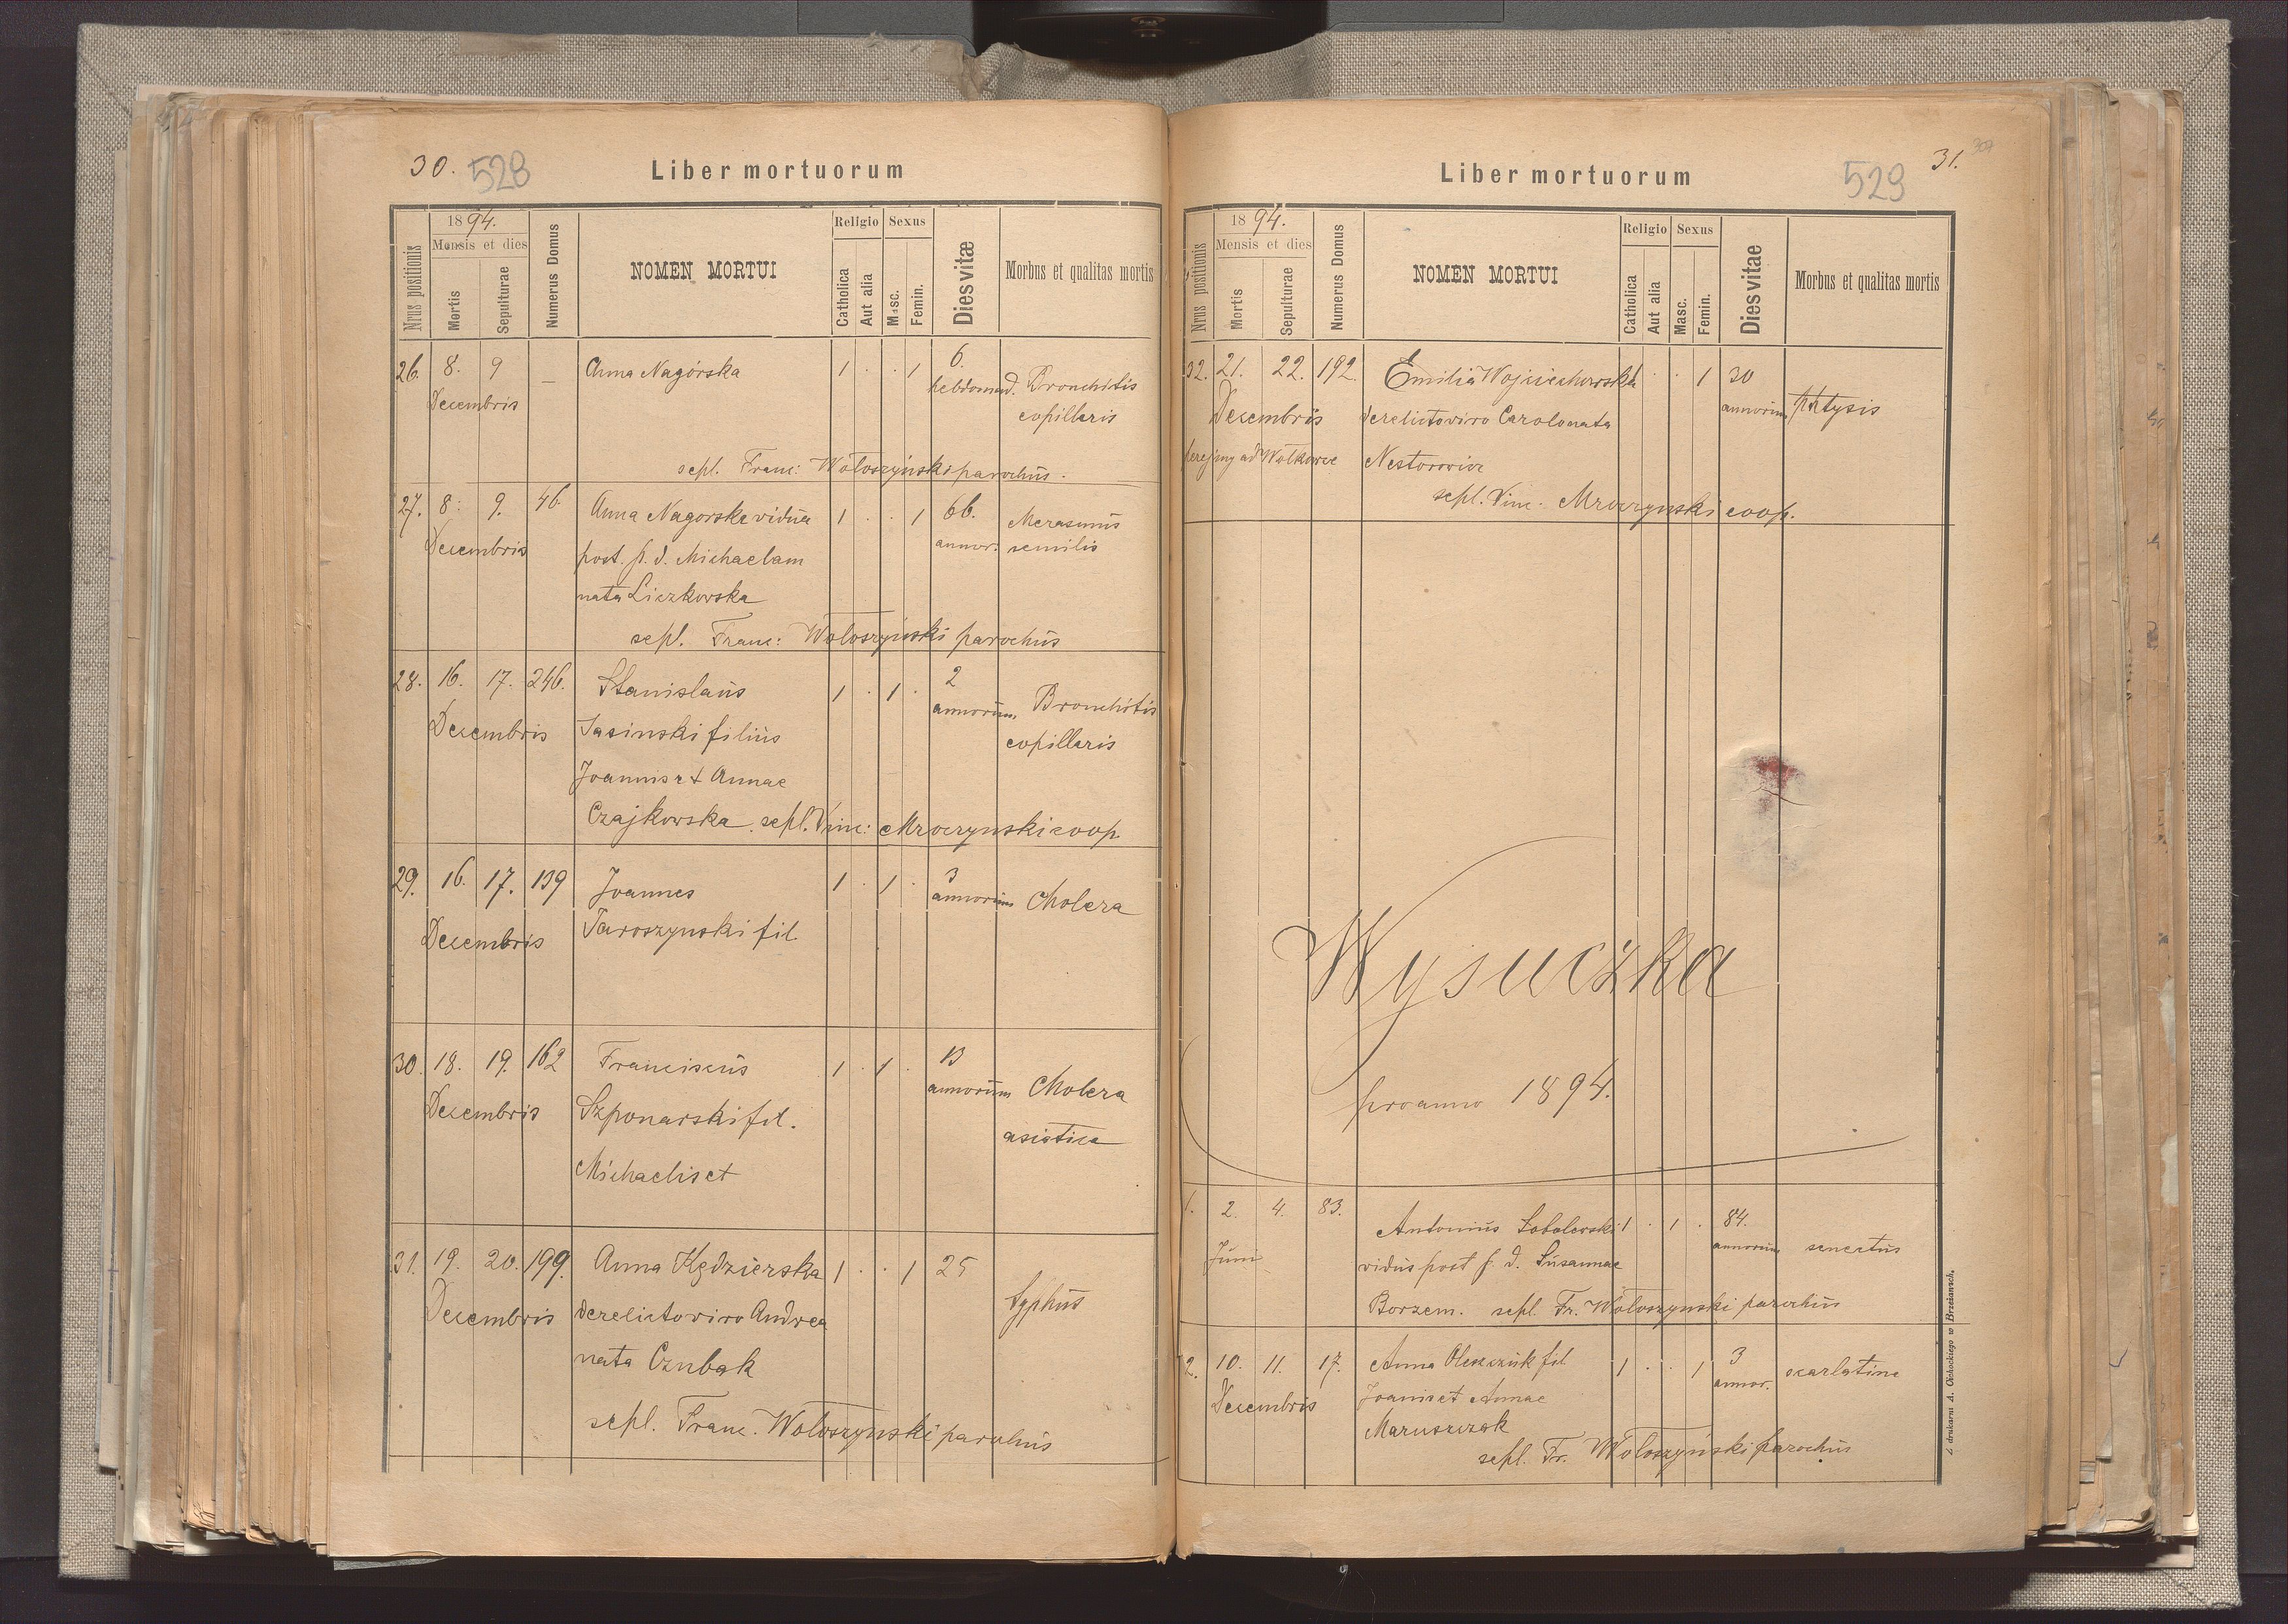 30. 528
Liber mortuorum
Nrus positionis
1894.
Mensis et dies
Mortis
Sepulturae
Numerus Domus
NOMEN MORTUI
Religio
Catholica
Aut alia
Sexus
Masc.
Femin.
Dies vitæ
Morbus et qualitas mortis
26. 8. 9 — Anna Nagórska 1 . . 1 6.
Decembris hebdomad. Bronchitis
copillaris
sepl. Franc: Wołoszyński parochus.
27. 8. 9. 46. Anna Nagorska vidua 1 . . 1 66. Marasmus
Decembris post. p. d. Michaelam annor. senilis
nata Liczkowska
sepl. Franc: Wołoszyński parochus
28. 16. 17. 246. Stanislaus 1 . 1 . 2
Decembris Jasinski filius annorum Bronchitis
Joannis et Annae copillaris
Czajkowska sepl. Vinc: Mroczynski coop.
29. 16. 17. 139 Joannes 1 . 1 . 3 annorum Cholera
Decembris Jaroszynski fil.
30. 18. 19. 162 Franciscus 1 . 1 . 13
Decembris Szponarski fil. annorum Cholera
Michaelis et asiatica
31. 19. 20. 199. Anna Kędzierska 1 . . 1 25
Decembris derelicto viro Andrea Typhus
nata Czubak
sepl. Franc. Wołoszyński parochus
31.
529
Liber mortuorum
Nrus positionis
1894.
Mensis et dies
Mortis
Sepulturae
Numerus Domus
NOMEN MORTUI
Religio
Catholica
Aut alia
Sexus
Masc.
Femin.
Dies vitae
Morbus et qualitas mortis
32. 21. 22. 192. Emilia Wojciechowska 1 . . 1 30
Decembris derelicto viro Carolo nata annorum phtysis
ad Wołkowce Nestorowicz
sepl. Vinc. Mroczynski coop.
Wysuczka
pro anno 1894.
1. 2. 4. 83. Antonius Sobolewski 1 . 1 . 84.
Juni viduus post p. d. Susannae annorum senectus
Borzem. sepl. Fr. Wołoszynski parochus
2. 10. 11. 17. Anna Oleszczuk fil. 1 . . 1 3 scarlatina
Decembris Joanis et Annae annor.
Maruszczak
sepl. Fr. Wołoszyński parochus
Z drukarni A. Cichockiego w Brzeżanach.